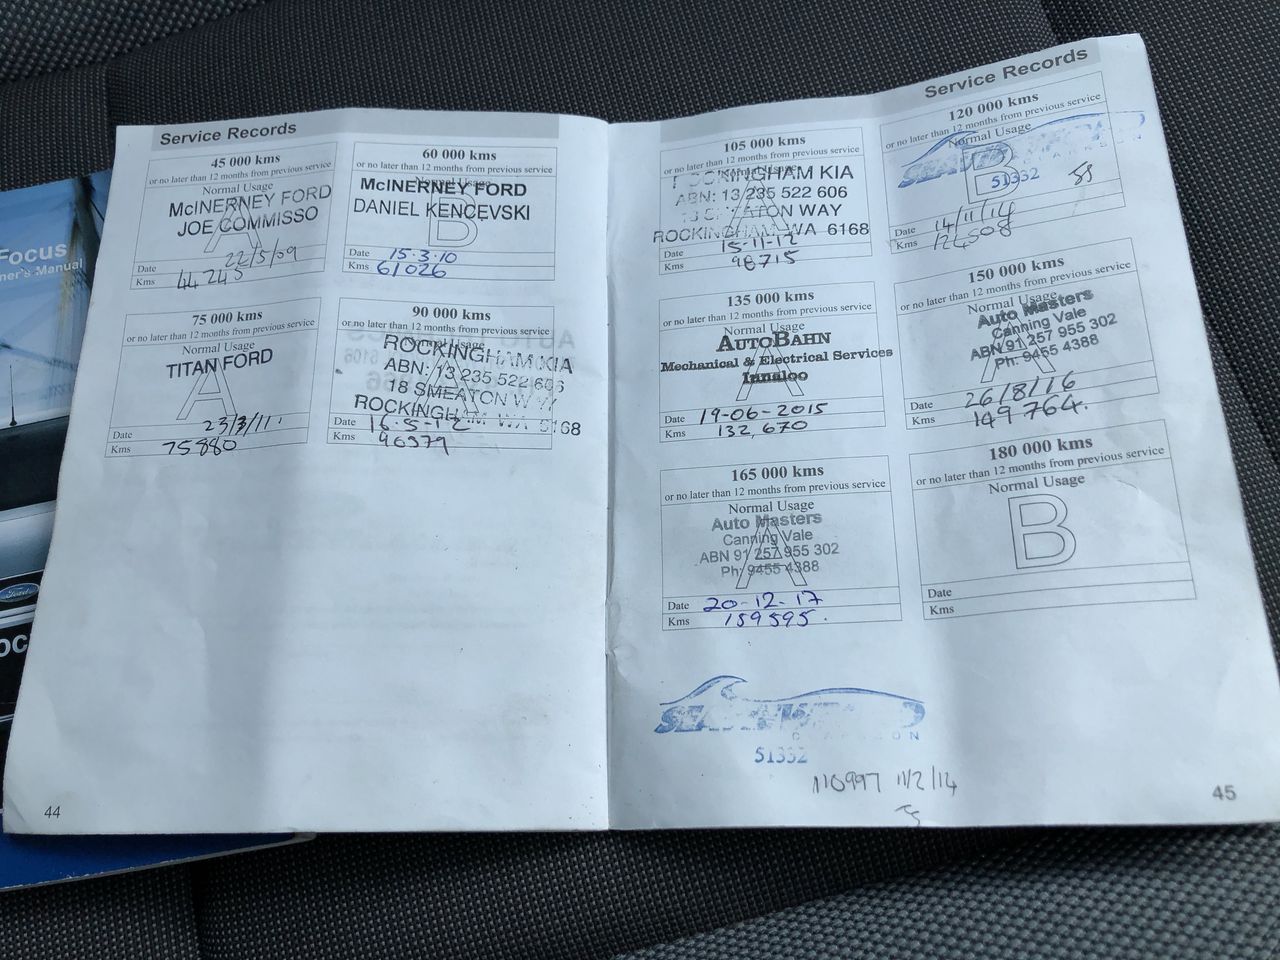 Focus
ner's Manual
Ford
OC
Service Records
45 000 kms
or no later than 12 months from previous service
Normal Usage
McINERNEY FORD
JOE COMMISSO
A
Date 22/5/09
Kms 44 245
60 000 kms
or no later than 12 months from previous service
Normal Usage
McINERNEY FORD
DANIEL KENCEVSKI
B
Date 15.3.10
Kms 61026
75 000 kms
or no later than 12 months from previous service
Normal Usage
TITAN FORD
A
Date 23/3/11
Kms 75880
90 000 kms
or no later than 12 months from previous service
ROCKINGHAM KIA
ABN: 13 235 522 606
18 SMEATON WAY
ROCKINGHAM WA 6168
Date 16-5-12
Kms 90379
44
Service Records
105 000 kms
or no later than 12 months from previous service
Normal Usage
ROCKINGHAM KIA
ABN: 13 235 522 606
18 SMEATON WAY
ROCKINGHAM WA 6168
A
Date 15-11-12
Kms 98715
120 000 kms
or no later than 12 months from previous service
Normal Usage
B
51332
Date 14/11/14
Kms 124508
135 000 kms
or no later than 12 months from previous service
Normal Usage
AUTOBAHN
Mechanical & Electrical Services
Innaloo
A
Date 19-06-2015
Kms 132,670
150 000 kms
or no later than 12 months from previous service
Normal Usage
Auto Masters
Canning Vale
ABN 91 257 955 302
Ph: 9455 4388
A
Date 26/8/16
Kms 149764.
165 000 kms
or no later than 12 months from previous service
Normal Usage
Auto Masters
Canning Vale
ABN 91 257 955 302
Ph: 9455 4388
A
Date 20-12-17
Kms 159595.
180 000 kms
or no later than 12 months from previous service
Normal Usage
B
Date
Kms
51332
110997 11/2/14
45